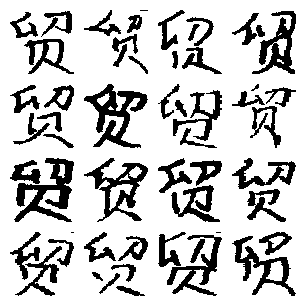 贸贸贸贸
贸贸贸贸
贸贸贸贸
贸贸贸贸